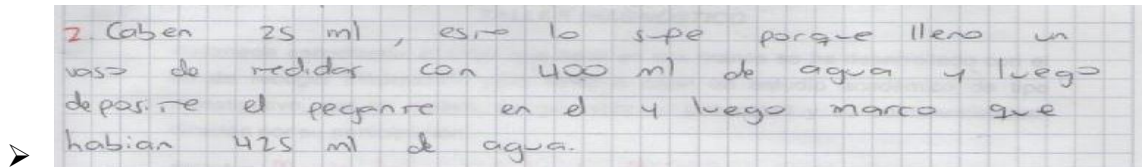 2 Caben 25 ml, esto lo supe porque lleno un
vaso de medidas con 400 ml de agua y luego
deposite el pegante en el y luego marco que
habian 425 ml de agua.